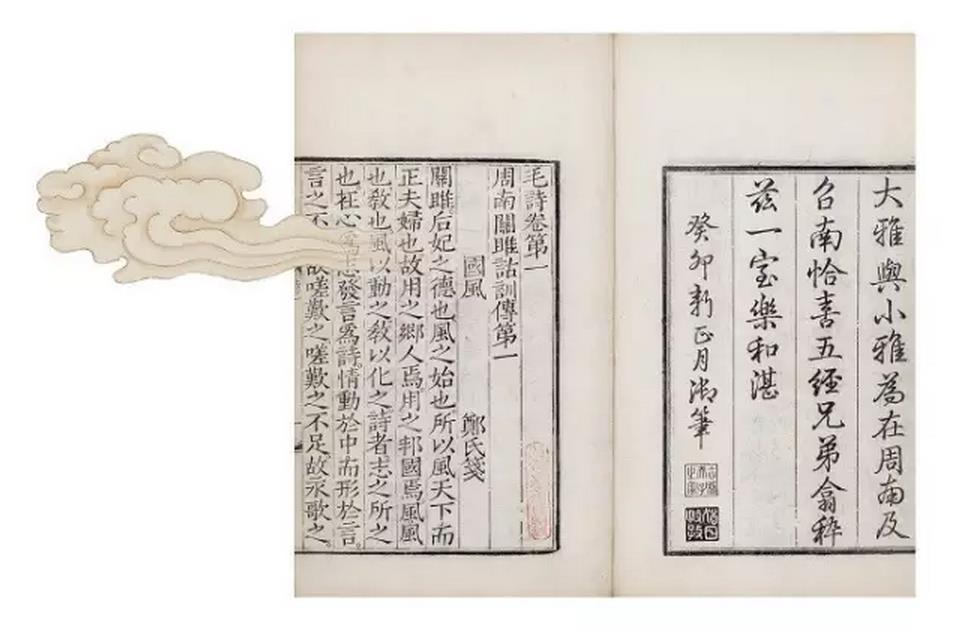 大雅與小雅為在周南及
召南恰喜五經兄弟翕稡
茲一室樂和湛
癸卯新正月御筆
毛詩卷第一
周南關雎詁訓傳第一
國風 鄭氏箋
關雎后妃之德也風之始也所以風天下而
正夫婦也故用之鄉人焉用之邦國焉風風
也教也風以動之教以化之詩者志之所之
也在心爲志發言爲詩情動於中而形於言
言之不故嗟歎之嗟歎之不足故永歌之